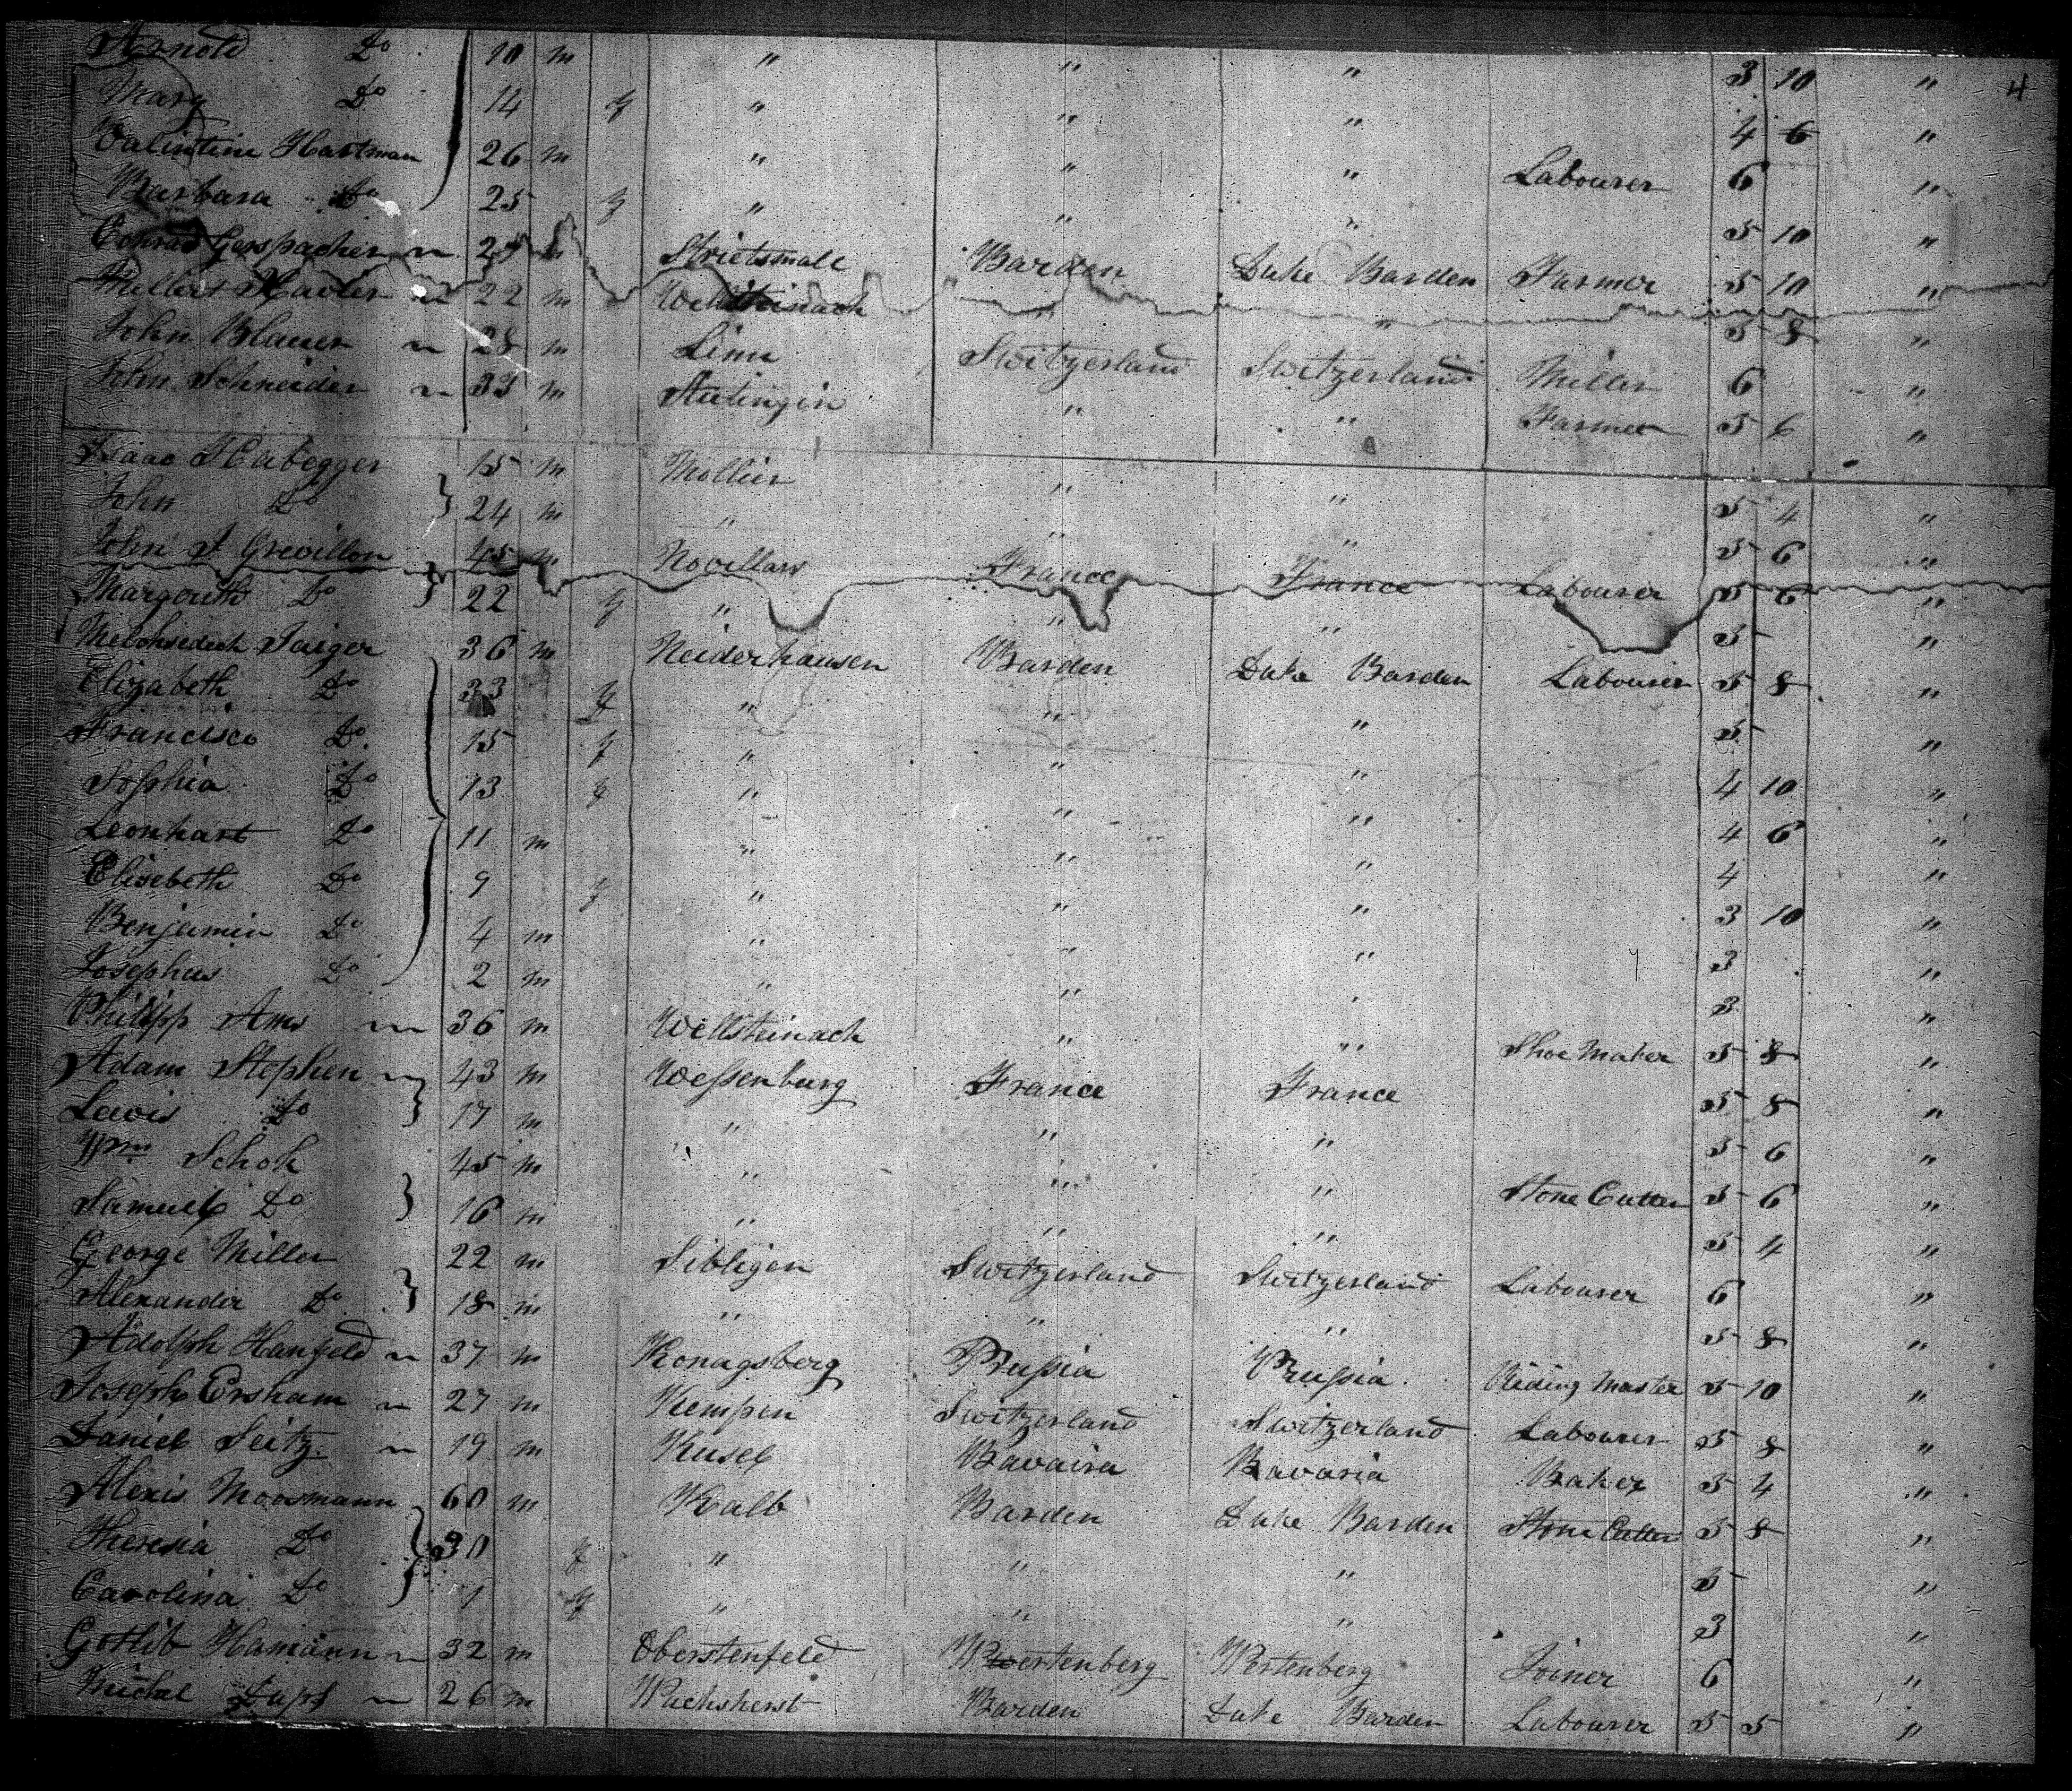 Arnold Do 10 m " " " 3 10 " 4
Mary Do 14 f " " " 4 6 "
Valintine Hartman 26 m " " " Labourer 6 "
Barbara Do 25 f " " " 5 10 "
Conrad Gerspacher 24 m Strietsmatt Barden Duke Barden Farmer 5 10 "
Millert Xavier 22 m Wellsteinach " " 5 8 "
John Blauer 28 m Linn Switzerland Switzerland Miller 6 "
John Schneider 33 m Stetingin " " Farmer 5 6 "
Isaac Habegger 15 m Mollier " " 5 4 "
John Do 24 m " " " 5 6 "
John J Grevillon 45 m Novillars France France Labourer 5 6 "
Margouth Do 22 f " " " 5 "
Melchsedech Jaiger 36 m Neiderhausen Barden Duke Barden Labourer 5 8 "
Elizabeth Do 33 f " " " 5 "
Francisco Do 15 f " " " 4 10 "
Sophia Do 13 f " " " 4 6 "
Leonhart Do 11 m " " " 4 "
Elisebeth Do 9 f " " " 3 10 "
Benjamin Do 4 m " " " 3 "
Josephus Do 2 m " " " 3 "
Philipp Ams 36 m Wellsteinach " " Shoe Maker 5 8 "
Adam Stephen 43 m Wessenburg France France 5 8 "
Lewis Do 17 m " " " 5 6 "
Wm Schok 45 m " " " Stone Cutter 5 6 "
Samuel Do 16 m " " " 5 4 "
George Miller 22 m Sibligen Switzerland Switzerland Labourer 6 "
Alexander Do 18 m " " " 5 8 "
Adolph Hanfeld 37 m Konagsberg Prussia Prussia Riding Master 5 10 "
Joseph Ersham 27 m Kempen Switzerland Switzerland Labourer 5 8 "
Daniel Seitz 19 m Kusel Bavaira Bavaria Baker 5 4 "
Alexis Moosmann 60 m Kalb Barden Duke Barden Stone Cutter 5 8 "
Theresia Do 30 f " " " 5 "
Carolina Do 1 f " " " 3 "
Gotlib Hamann 32 m Oberstenfeld Wertenberg Wertenberg Joiner 6 "
Michal 26 m Wichsherst Barden Duke Barden Labourer 5 5 "